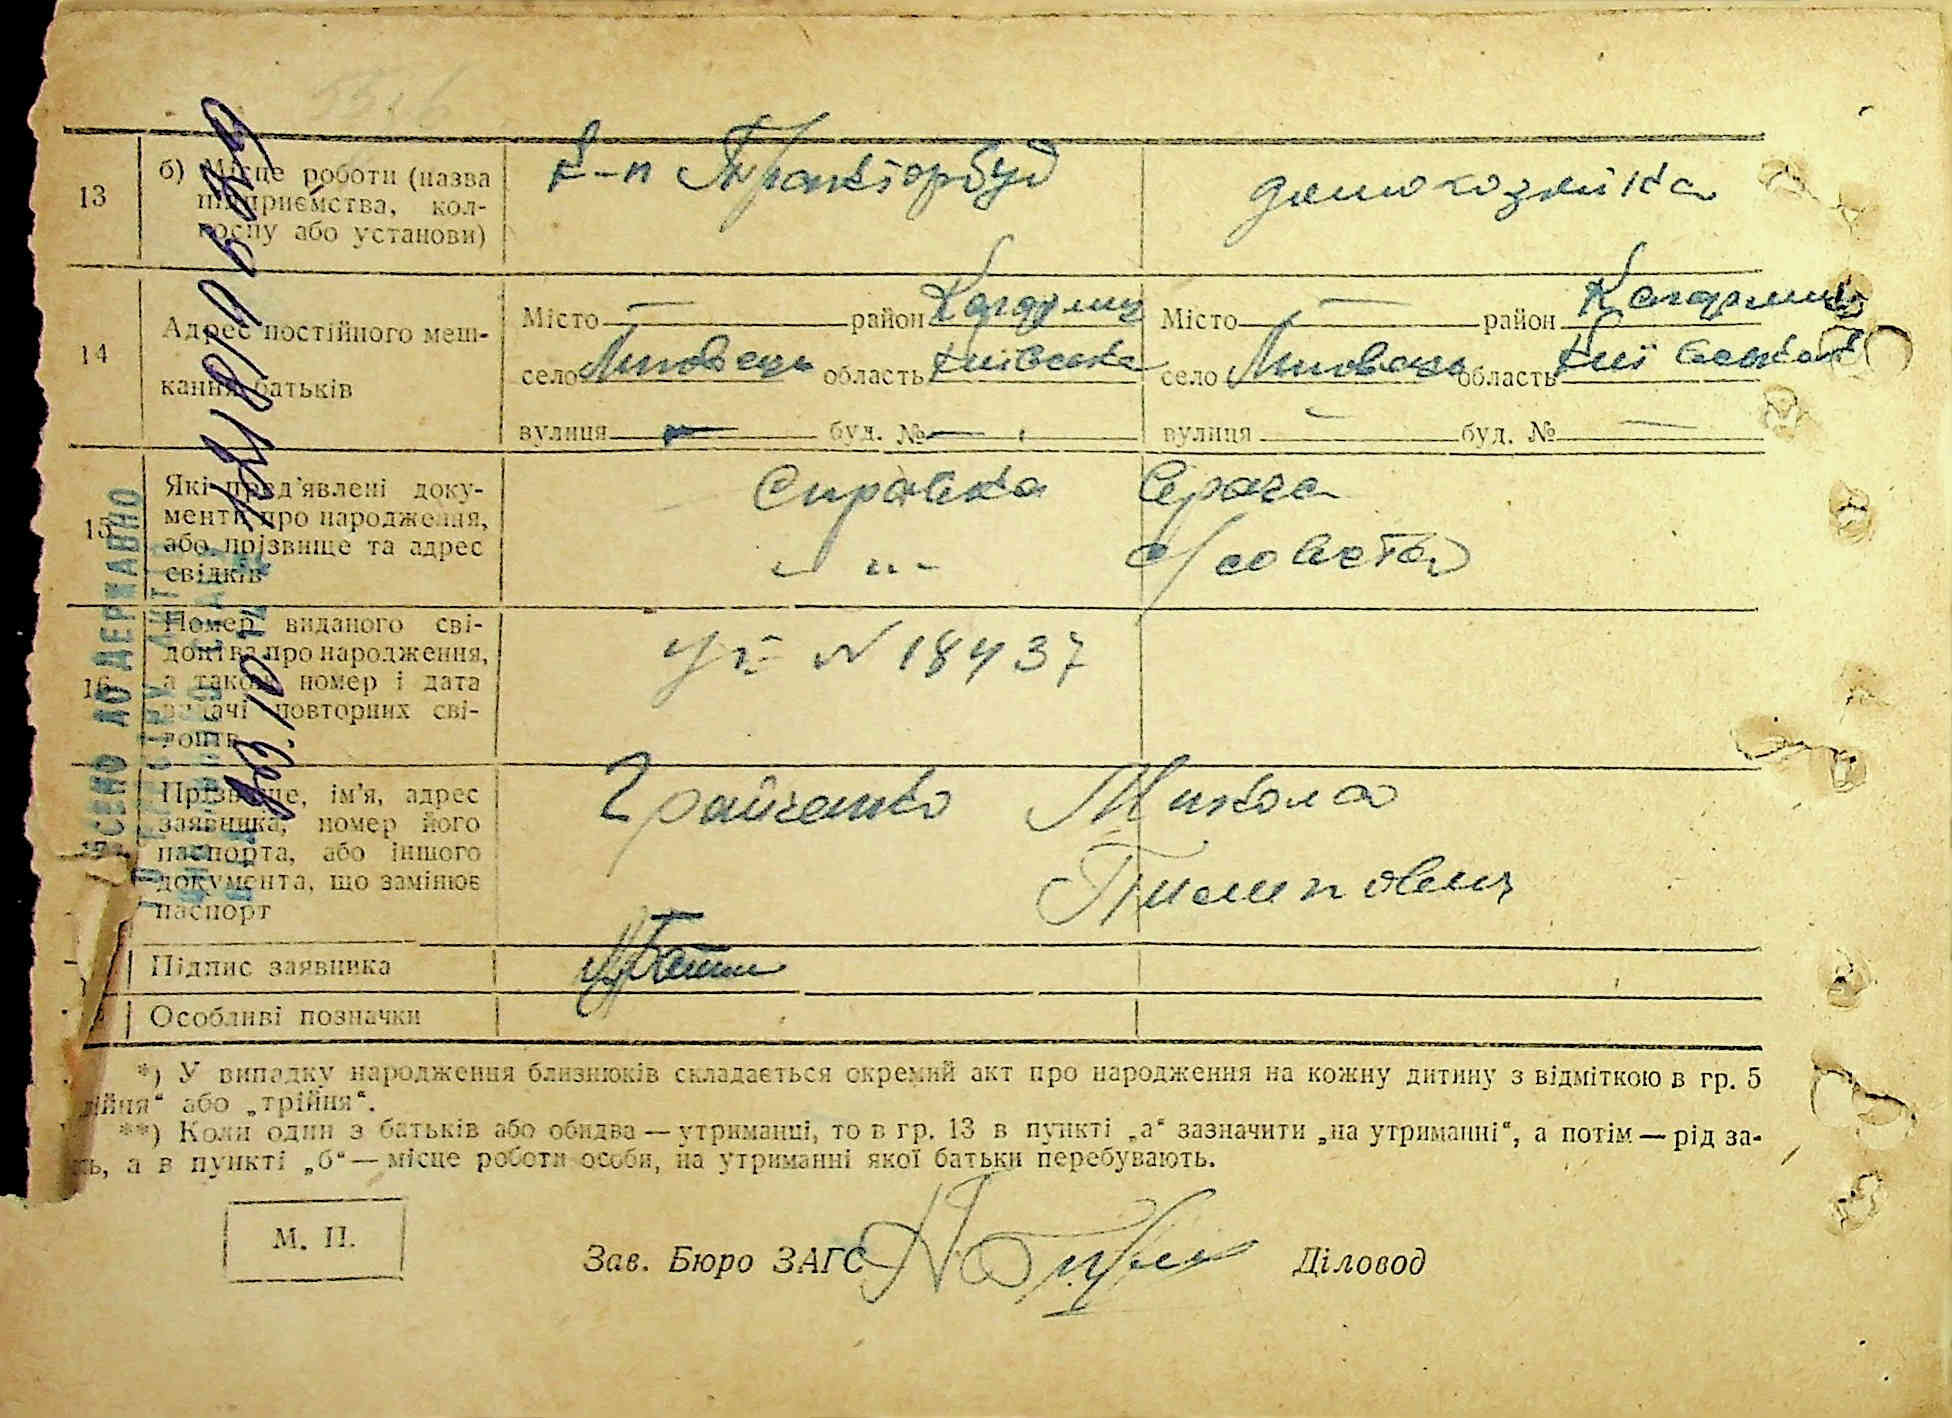 13
б) Місце роботи (назва
підприємства, кол-
госпу або установи)
к-п Тракторбуд
домохазяйка
14
Адрес постійного меш-
кання батьків
Місто — район Кагарлиц
село Липовець область Київська
вулиця — буд. № —
Місто — район Кагарлицьк
село Липовець область Київська
вулиця — буд. № —
15
Які пред'явлені доку-
менти про народження,
або прізвище та адрес
свідків
Справка Врача
— „ — С/совета
16
Номер виданого сві-
доцтва про народження,
а також номер і дата
видачі повторних сві-
доцтв
№ 18437
Прізвище, ім'я, адрес
заявника, номер його
паспорта, або іншого
документа, що замінює
паспорт
Микола
Пилипович
Підпис заявника
Особливі позначки
*) У випадку народження близнюків складається окремий акт про народження на кожну дитину з відміткою в гр. 5
ійня“ або „трійня“.
**) Коли один з батьків або обидва — утриманці, то в гр. 13 в пункті „а“ зазначити „на утриманні“, а потім — рід за-
ь, а в пункті „б“ — місце роботи особи, на утриманні якої батьки перебувають.
М. П.
Зав. Бюро ЗАГС
Діловод
ВНЕСЕНО ДО ДЕРЖАВНО